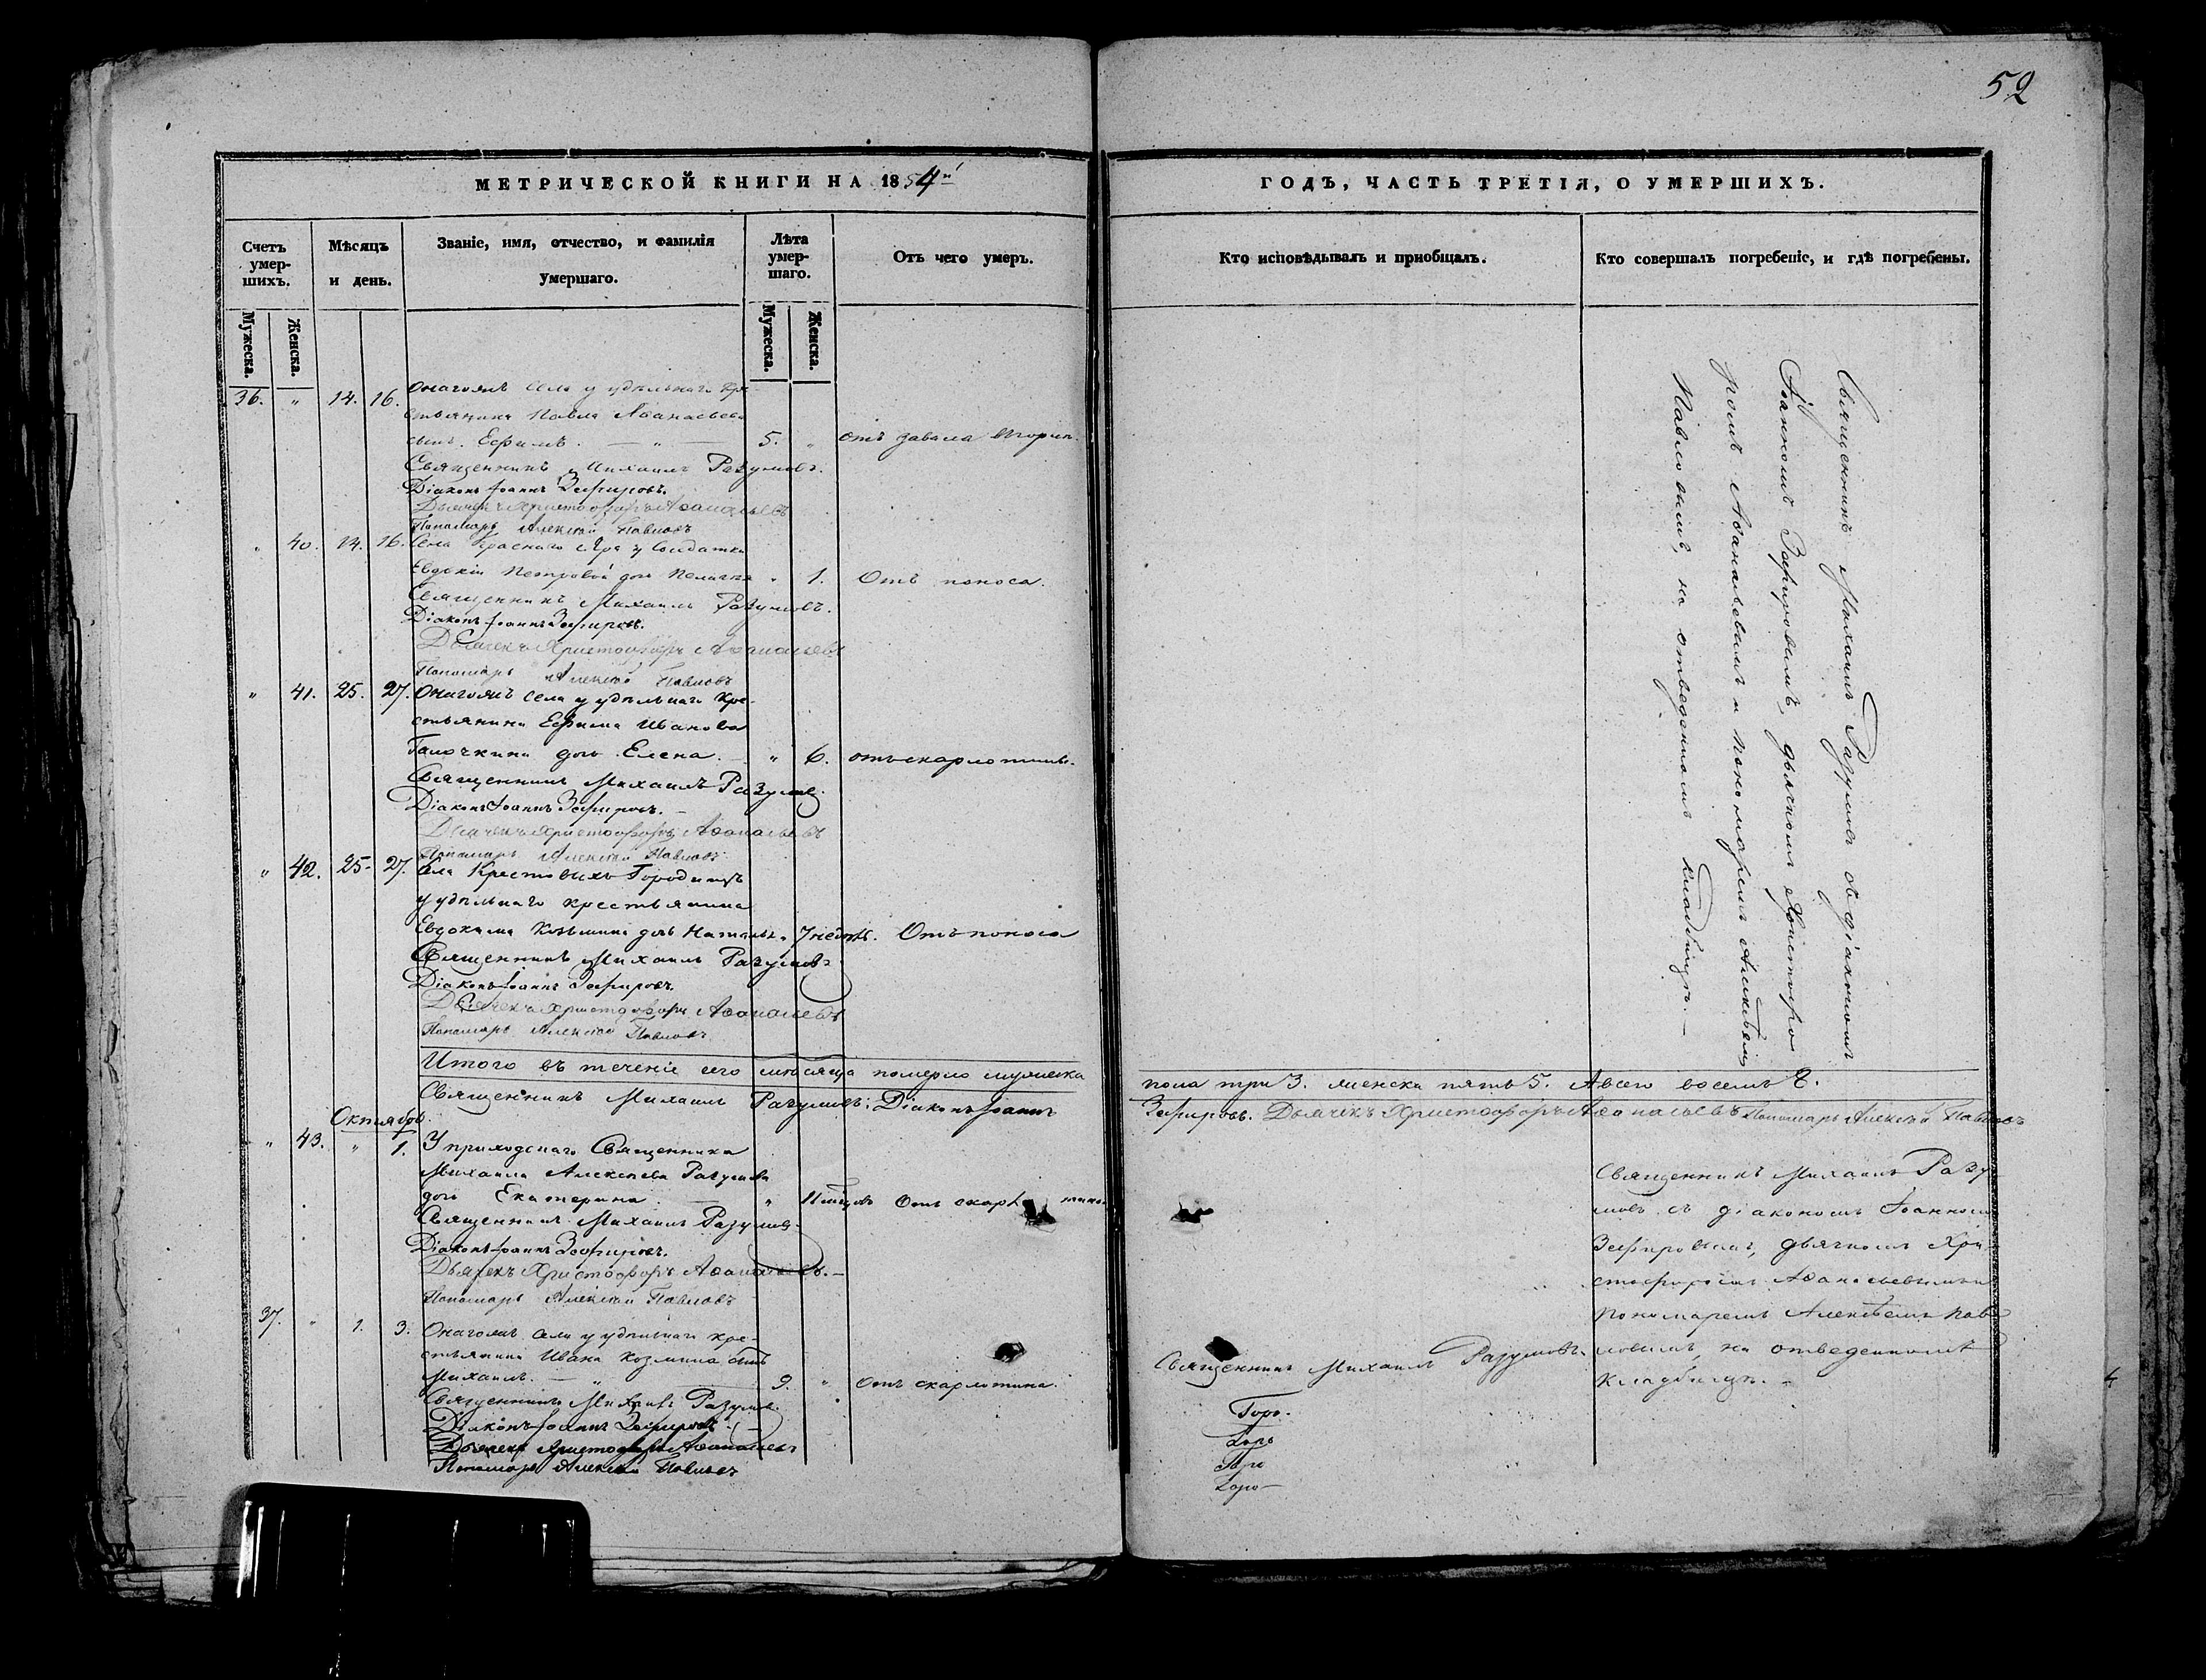 52
МЕТРИЧЕСКОЙ КНИГИ НА 1854й
ГОДЪ, ЧАСТЬ ТРЕТІЯ, О УМЕРШИХЪ.
Счетъ умер-шихъ.
Мужеска.
Женска.
Мѣсяцъ и день.
Званіе, имя, отчество, и фамилія умершаго.
Лѣта умер-шаго.
Мужеска.
Женска.
Отъ чего умеръ.
Кто исповѣдывалъ и пріобщалъ.
Кто совершалъ погребеніе, и гдѣ погребены.
36. " 14. 16. Онагожъ села у удѣльнаго кре-
стьянина Павла Аѳанасьева
сынъ Ефимъ. — " — 5. " отъ
Священникъ Михаилъ Разумовъ.
Діаконъ Іоаннъ Зефировъ.
Дьячекъ Христофоръ Аѳанасьевъ
Пономарь Алексѣй Павловъ
" 40. 14. 16. Села Краснаго Яра у солдатки
Евдокіи Петровой дочь Пелагея " 1. Отъ поноса.
Священникъ Михаилъ Разумовъ.
Діаконъ Іоаннъ Зефировъ.
Дьячекъ Христофоръ Аѳанасьевъ
Пономарь Алексѣй Павловъ
" 41. 25. 27. Онагожъ села у удѣльнаго кре-
стьянина Ефима Иванова
Галочкина дочь Елена. — " 6. отъ скарлотины.
Священникъ Михаилъ Разумовъ.
Діаконъ Іоаннъ Зефировъ. —
Дьячекъ Христофоръ Аѳанасьевъ
Пономарь Алексѣй Павловъ
" 42. 25. 27. Села Крестовыхъ Городищъ
у удѣльнаго крестьянина
Евдокима Козьмина дочь Наталья " 7 недѣль. Отъ поноса
Священникъ Михаилъ Разумовъ
Діаконъ Іоаннъ Зефировъ.
Дьячекъ Христофоръ Аѳанасьевъ
Пономарь Алексѣй Павловъ
Священникъ Михаилъ Разумовъ съ діакономъ
Іоанномъ Зефировымъ, дьячкомъ Христофо
ромъ Аѳанасьевымъ и пономаремъ Алексѣемъ
Павловымъ, на отведенномъ кладбищѣ. —
Итого въ теченіе сего мѣсяца померло мужеска пола три 3. женска пять 5. А всего восемь 8.
Священникъ Михаилъ Разумовъ. Діаконъ Іоаннъ Зефировъ. Дьячекъ Христофоръ Аѳанасьевъ Пономарь Алексѣй Павловъ
Октябрь.
" 43. " 1. У приходскаго Священника
Михаила Алексѣева Разумова
дочь Екатерина. — " 11 мѣсяцовъ Отъ скарлотины.
Священникъ Михаилъ Разумовъ
Діаконъ Іоаннъ Зефировъ.
Дьячекъ Христофоръ Аѳанасьевъ. —
Пономарь Алексѣй Павловъ
37. " 1. 3. Онагожъ села у удѣльнаго кре-
стьянина Ивана Козмина сынъ
Михаилъ. — " — 9. " Отъ скарлотины.
Священникъ Михаилъ Разумовъ.
Діаконъ Іоаннъ Зефировъ
Дьячекъ Христофоръ Аѳанасьевъ
Пономарь Алексѣй Павловъ
Священникъ Михаилъ Разумовъ.
Священникъ Михаилъ Разу-
мовъ съ діакономъ Іоанномъ
Зефировымъ, дьячкомъ Хри-
стофоромъ Аѳанасьевымъ и
пономаремъ Алексѣемъ Пав-
ловымъ, на отведенномъ
кладбищѣ. —